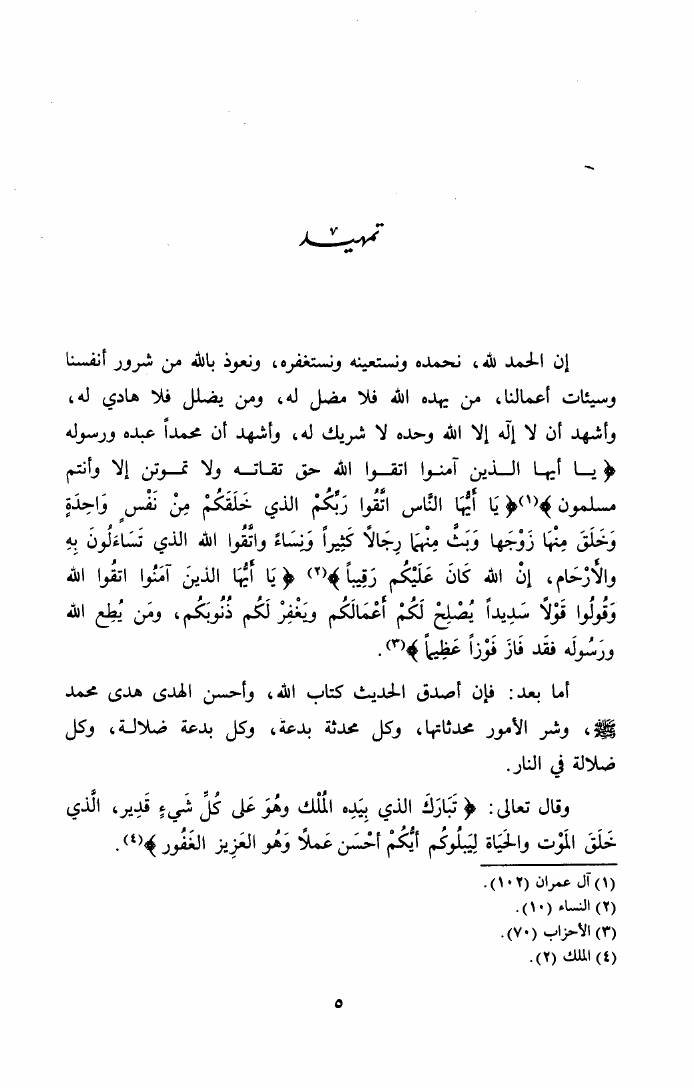 تمهيد
إن الحمد لله، نحمده ونستعينه ونستغفره، ونعوذ بالله من شرور أنفسنا
وسيئات أعمالنا، من يهده الله فلا مضل له، ومن يضلل فلا هادي له،
وأشهد أن لا إلٰه إلا الله وحده لا شريك له، وأشهد أن محمداً عبده ورسوله
﴿ يـا أيهـا الـذين آمنـوا اتقـوا الله حق تقـاتـه ولا تمـوتن إلا وأنتم
مسلمون ﴾(١)﴿ يَا أَيُّهَا النَّاس اتَّقُوا رَبِّكُمْ الذي خَلَقَكُمْ مِنْ نَفْسٍ وَاحِدَةٍ
وَخَلَقَ مِنْهَا زَوْجَها وَبَثَّ مِنْهمَا رِجَالاً كَثِيراً وَنِسَاءً واتَّقُوا الله الذي تَسَاءَلُونَ بِهِ
والأَرْحَام، إنْ الله كَانَ عَلَيْكُم رَقِيباً ﴾(٢) ﴿ يَا أَيُّهَا الذينَ آمَنُوا اتقُوا الله
وَقُولُوا قَوْلاً سَدِيداً يُصْلِحْ لَكُمْ أَعْمَالَكُم ويَغْفِرْ لَكُم ذُنُوبَكُم، ومَن يُطِع الله
ورَسُولَه فقَد فَازَ فَوْزاً عَظِيماً ﴾(٣).
أما بعد: فإن أصدق الحديث كتاب الله، وأحسن الهدى هدى محمد
ﷺ، وشر الأمور محدثاتها، وكل محدثة بدعة، وكل بدعة ضلالـة، وكل
ضلالة في النار.
وقال تعالى: ﴿ تَبَارَكَ الذي بِيَدِه المُلْك وهُوَ عَلى كُلِّ شَيءٍ قَدِير، الَّذي
خَلَقَ المَوْت والحَيَاة لِيَبلُوكُم أيُّكُمْ أحْسَن عَملاً وَهُو العَزِيز الغَفُور ﴾(٤).
(١) آل عمران (١٠٢).
(٢) النساء (١٠).
(٣) الأحزاب (٧٠).
(٤) الملك (٢).
٥